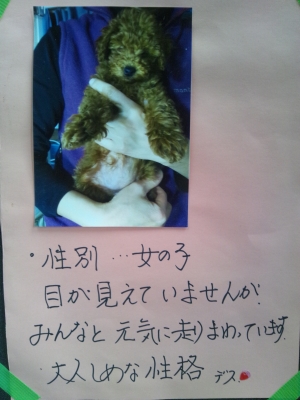 ・性別…女の子
目が見えていませんが、
みんなと元気に走りまわっています。
大人しめな性格デス。